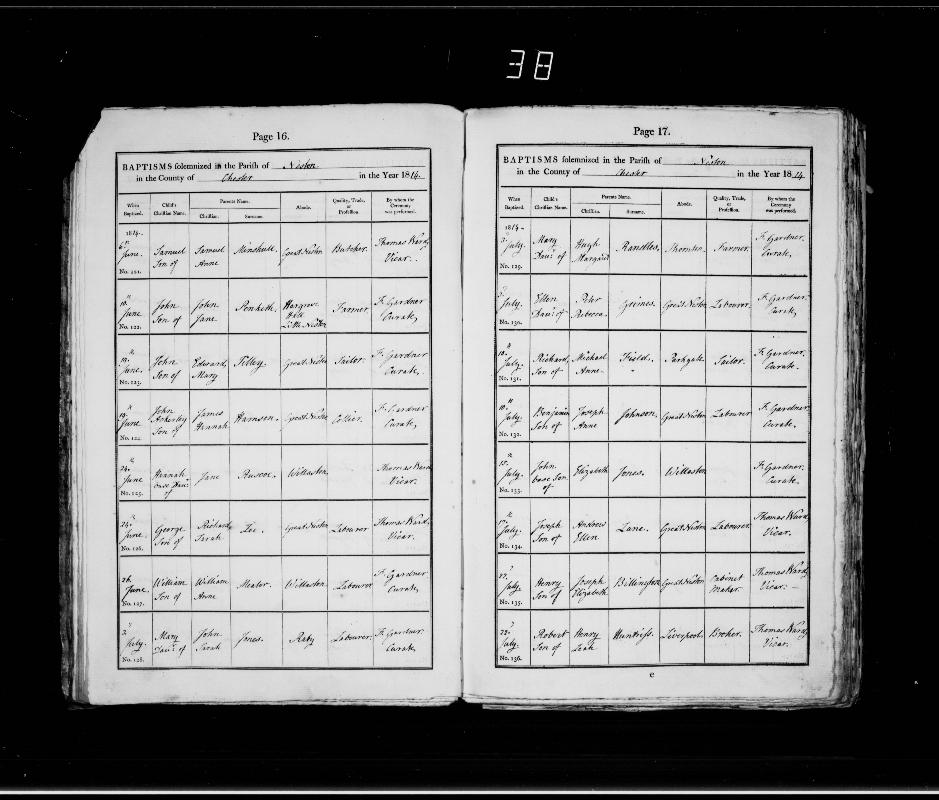 38
Page 16.
BAPTISMS solemnized in the Parish of Neston
in the County of Chester in the Year 1814.
When Baptized. Child's Christian Name. Parents Name. Christian. Surname. Abode. Quality, Trade, or Profession. By whom the Ceremony was performed.
1814.
June. Samuel Son of Samuel Anne Minshull. Great Neston Butcher. Thomas Ward, Vicar.
No. 121.
June John Son of John Jane Penketh. Hargrove Hall Little Neston Farmer F. Gardner Curate,
No. 122.
June. John Son of Edward, Mary Tilley. Great Neston Sailor F. Gardner Curate,
No. 123.
19. June. John Son of James Hannah Great Neston Collier. F. Gardner Curate,
No. 124.
24. June Hannah base Daur. of Jane Ruscoe. Willaston Thomas Ward Vicar.
No. 125.
June. George Son of Richard, Sarah Lee. Great Neston Labourer Thomas Ward, Vicar.
No. 126.
26. June. William Son of William Anne Willaston Labourer F. Gardner Curate,
No. 127.
July. Mary Daur. of John Sarah Jones. Raby Labourer F. Gardner. Curate,
No. 128.
Page 17.
BAPTISMS solemnized in the Parish of Neston
in the County of Chester in the Year 1814.
When Baptized. Child's Christian Name. Parents Name. Christian. Surname. Abode. Quality, Trade, or Profession. By whom the Ceremony was performed.
1814.
July. Mary Daur. of Hugh Margaret Randles. Thornton. Farmer. F. Gardner. Curate,
No. 129.
July. Ellen Daur. of Peter Rebecca. Grimes. Great Neston Labourer. F. Gardner. Curate,
No. 130.
July. Richard, Son of Michael Anne. Field. Parkgate Sailor. F. Gardner Curate.
No. 131.
10. July. Benjamin Son of Joseph Anne Johnson. Great Neston Labourer F. Gardner. Curate.
No. 132.
July. John base Son of Elizabeth Jones. Willaston F. Gardner. Curate.
No. 133.
17. July. Joseph Son of Andrew Ellen Lane. Great Neston Labourer. Thomas Ward, Vicar.
No. 134.
July. Henry Son of Joseph Elizabeth Billington Great Neston Cabinet Maker. Thomas Ward, Vicar.
No. 135.
22. July. Robert Son of Henry Leah Huntriss. Liverpool. Broker. Thomas Ward, Vicar.
No. 136.
e